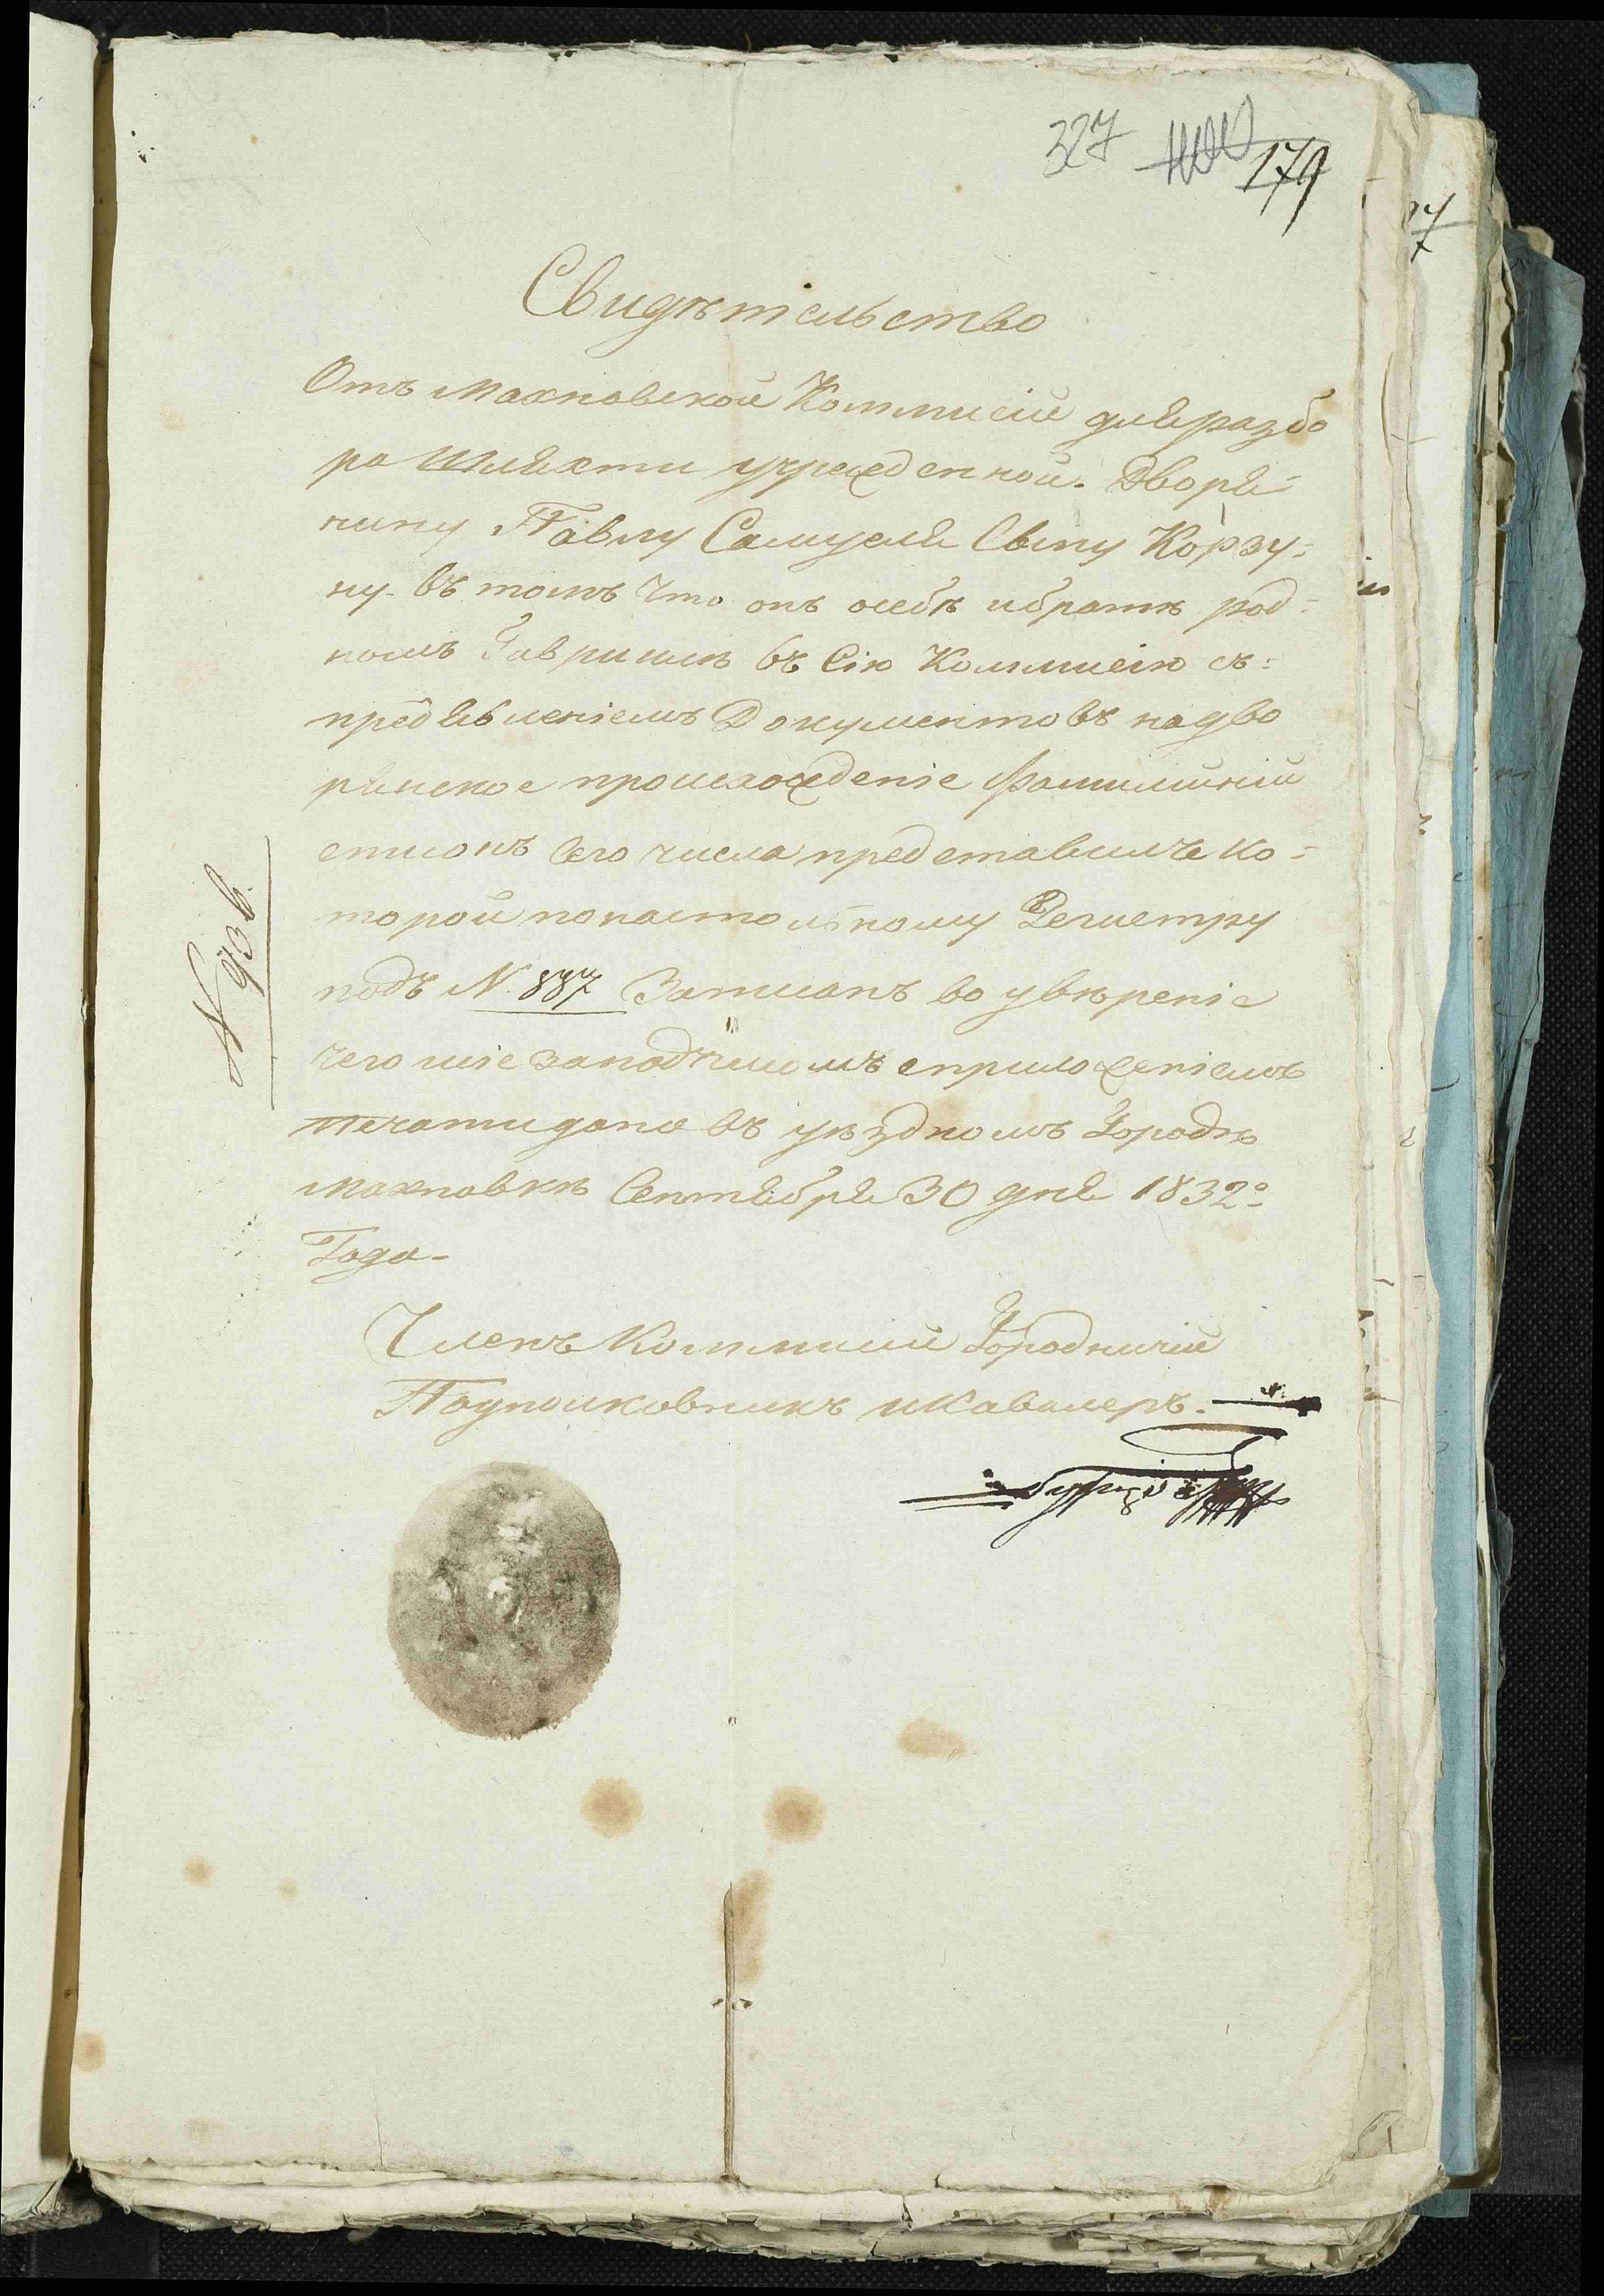 327 179
Свидѣтельство
Отъ Махновской Коммисіи для разбо
ра Шляхти учрежденной. Дворя-
нину Павлу Самуеля Сыну Корзу-
ну. въ томъ Что онъ осебѣ ибратѣ род-
номъ Гаврилѣ въ Сію Коммисію съ-
предъявленіемъ Документовъ надво
рянское происхожденіе Фамилийній
списокъ Сего числа представилъ ко-
торой понастольному Регистру
подъ N. 887 Записанъ во увѣреніе
чего сіе заподписомъ сприложеніемъ
Печати дано въ уѣздномъ Городѣ
Махновкѣ Сентября 30 дня 1832го
Года-
Членъ Коммисіи Городничій
Подполковникъ иКавалеръ.
N